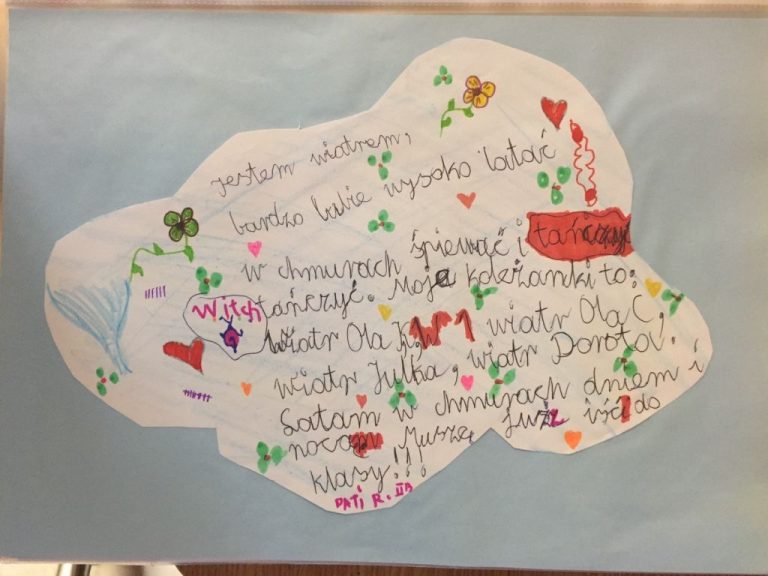 Jestem wiatrem,
bardzo lubie wysoko latać
w chmurach śpiewać i tańczyć
tańczyć. Moje koleżanki to:
Witch
wiatr Ola K, W 1 wiatr Ola C,
wiatr Julka, wiatr Dorota.
Latam w chmurach dniem i
nocą Muszę już iść do
klasy!!!
PATI R. IIB